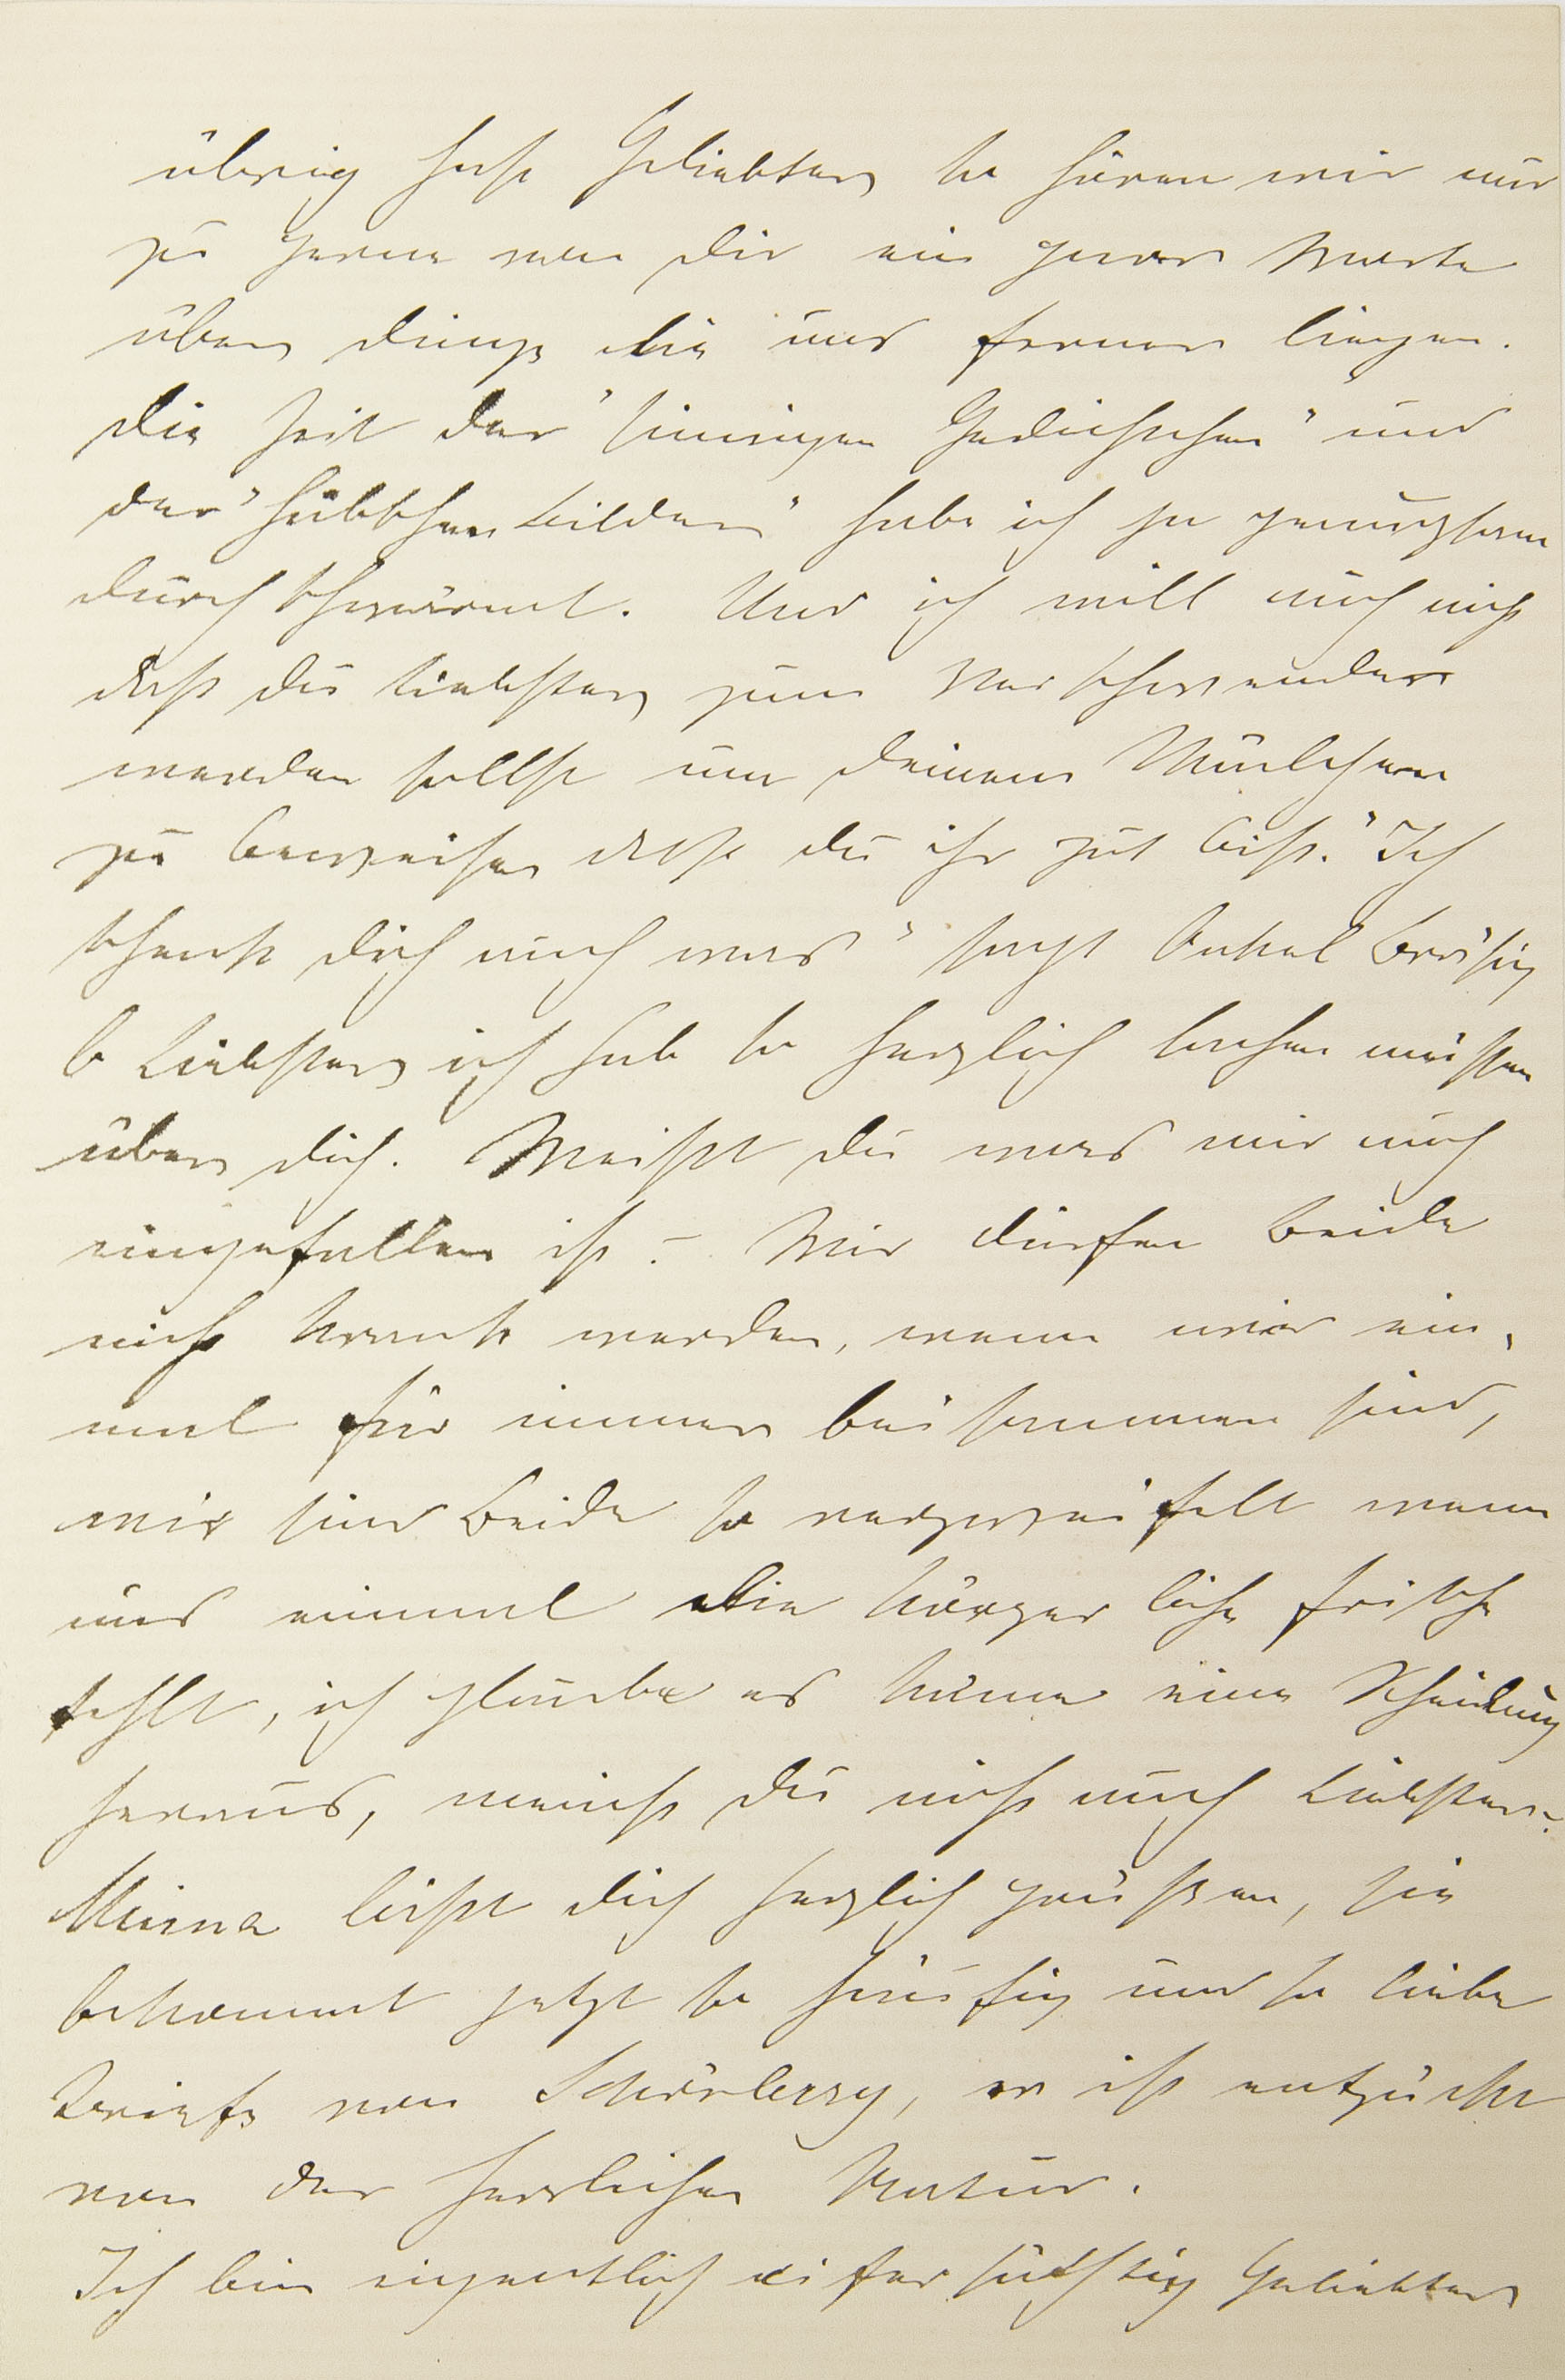 übrig hast Geliebter so hören wir nur
zu gerne von dir ein paar Worte
über Dinge die uns ferner liegen.
Die Zeit der "sinnigen Gedichtchen" und
der "hübschen Bilder" habe ich ja genugsam
durchschwärmt. Und ich will auch nicht
daß du Liebster zum Verschwender
werden sollst um deinem
zu beweisen daß du ihr gut bist. "Ich
schenk dich auch was" sagt Onkel Bräsig
O Liebster ich hab so herzlich lachen müssen
über dich. Weißt du was mir auch
eingefallen ist – Wir dürfen Beide
nicht krank werden, wenn wir ein-
mal für immer beisammen sind,
wir sind Beide so verzweifelt wenn
uns einmal die körperliche Frische
fehlt, ich glaube es käme eine Scheidung
heraus, meinst du nicht auch Liebster.
Minna läßt dich herzlich grüßen, sie
bekommt jetzt so häufig und so liebe
Briefe von Schönberg, er ist entzückt
von der herrlichen Natur.
Ich bin eigentlich eifersüchtig Geliebter